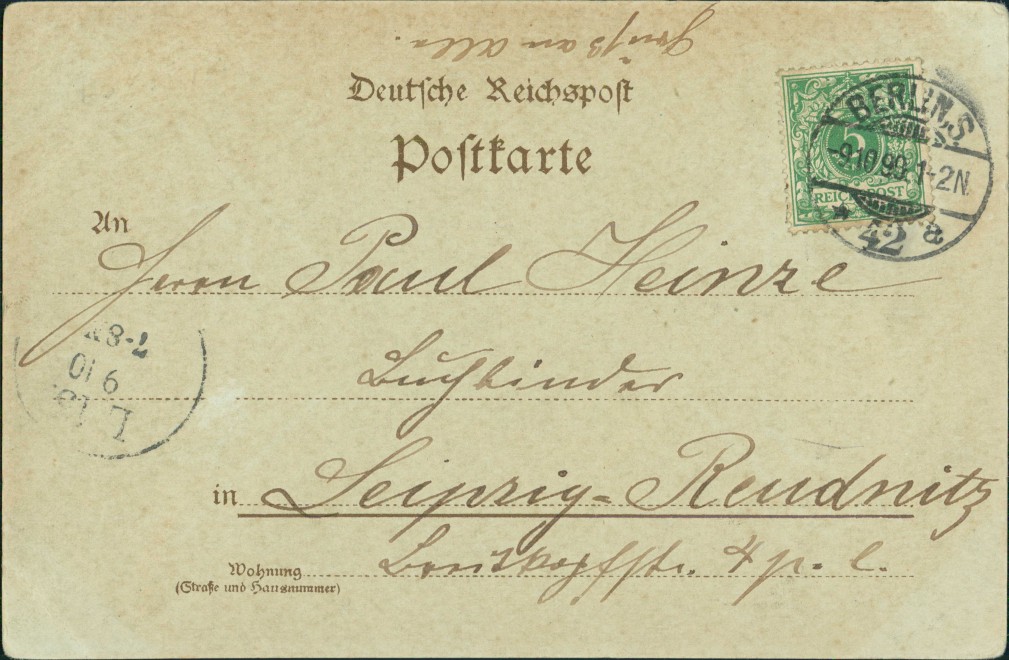 Gruß an Alle.
Deutsche Reichspost
Postkarte
5
REICHSPOST
BERLIN, S.
-9.10.99.1-2N.
* 42 a
An
Herrn Paul Heinze
Buchbinder
in Leipzig-Reudnitz
Wohnung
(Straße und Hausnummer)
4 p. l.
7-8
9 10
L